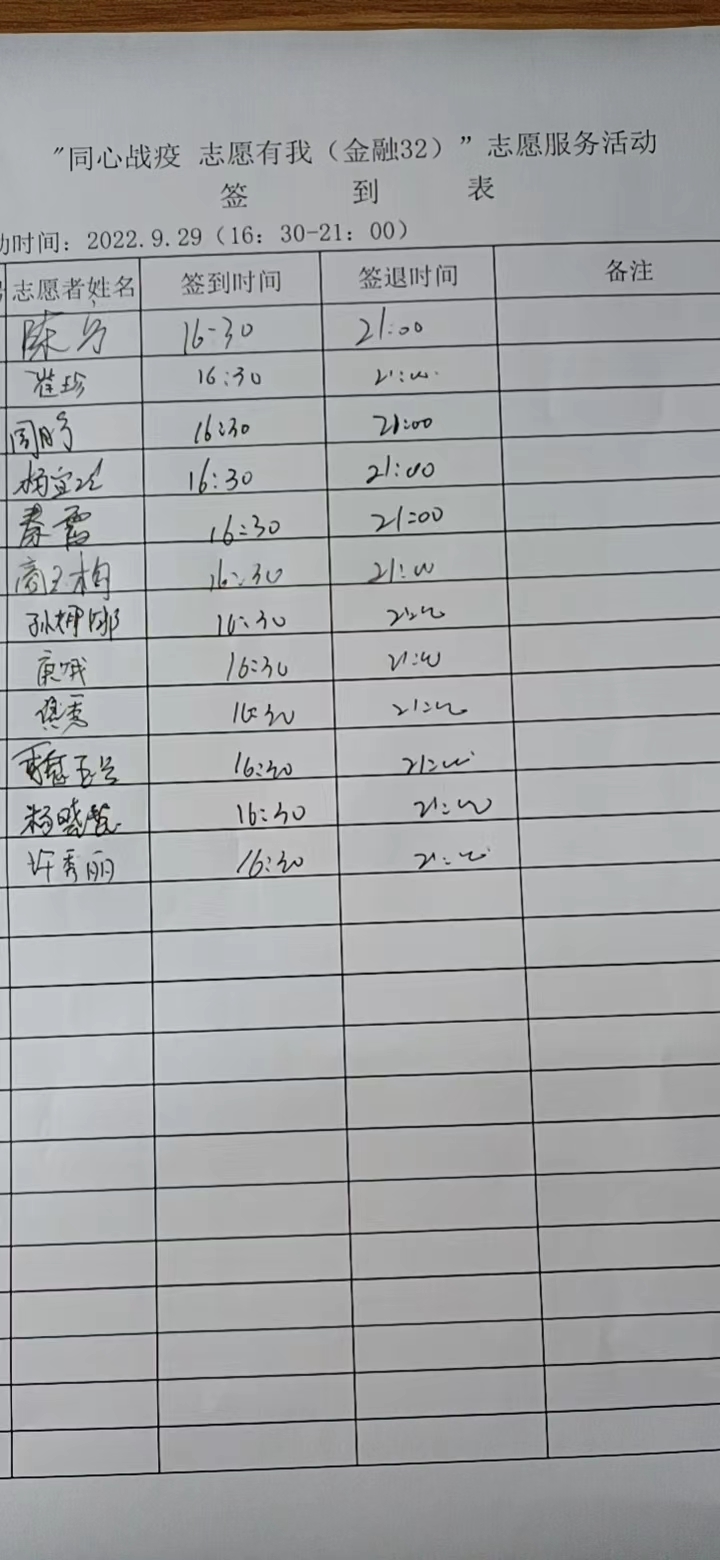 "同心战疫 志愿有我（金融32）"志愿服务活动
签 到 表
动时间：2022.9.29（16：30-21：00）
志愿者姓名 签到时间 签退时间 备注
陈 16-30 21:00
崔珍 16:30 21:00
周 16:30 21:00
杨宜 16:30 21:00
秦霞 16:30 21:00
商玉梅 16:30 21:00
孙娜 16:30 21:00
16:30 21:00
16:30 21:00
16:30 21:00
杨晓 16:30 21:00
许秀丽 16:30 21:00